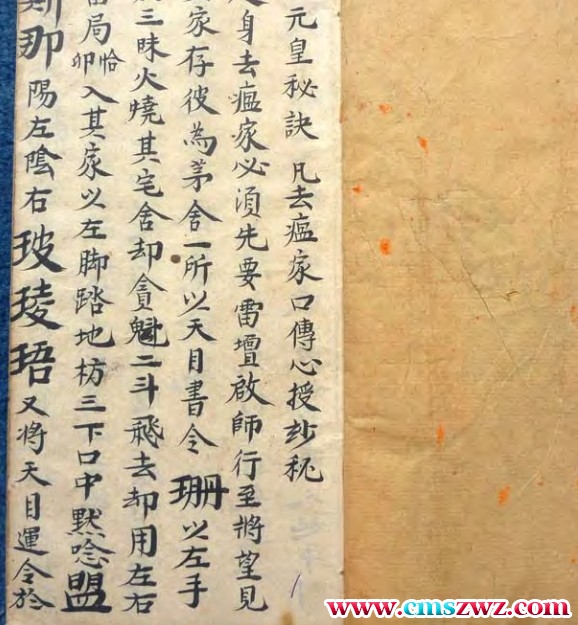 元皇秘訣 凡去瘟家口傳心授妙秘
身去瘟家必須先要雷壇啟師行至將望見
家存彼為茅舍一所以天目書令 珊以左手
三昧火燒其宅舍却貪魁二斗飛去却用左右
局恰卯入其家以左脚踏地枋三下口中黙唸盟
那陽左陰右玻琦珸又將天目運令於
www.cmszwz.com